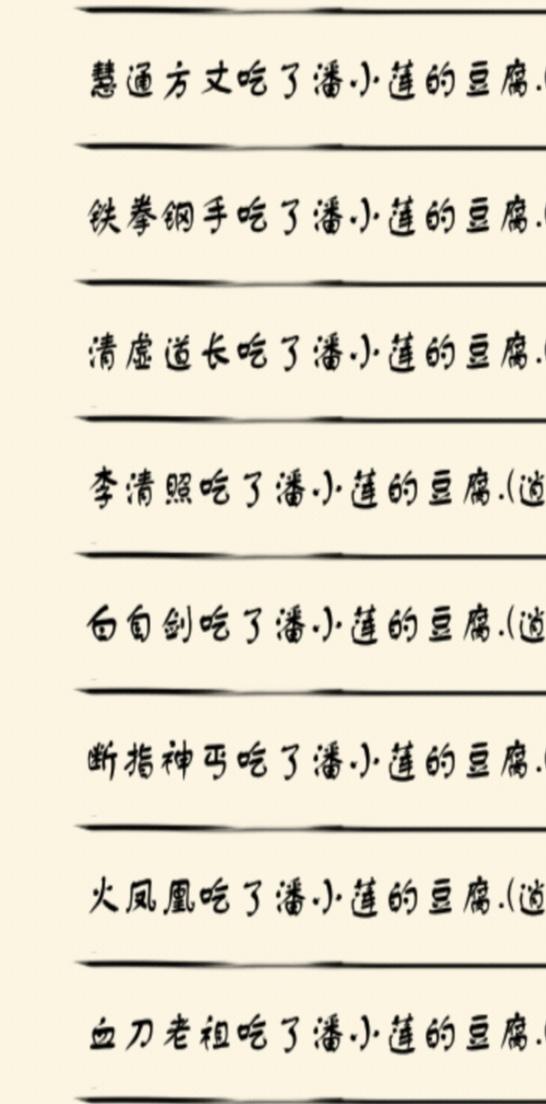 慧通方丈吃了潘小莲的豆腐.(
铁拳钢手吃了潘小莲的豆腐.(
清虚道长吃了潘小莲的豆腐.(
李清照吃了潘小莲的豆腐.(逍
白自剑吃了潘小莲的豆腐.(逍
断指神丐吃了潘小莲的豆腐.(
火凤凰吃了潘小莲的豆腐.(逍
血刀老祖吃了潘小莲的豆腐.